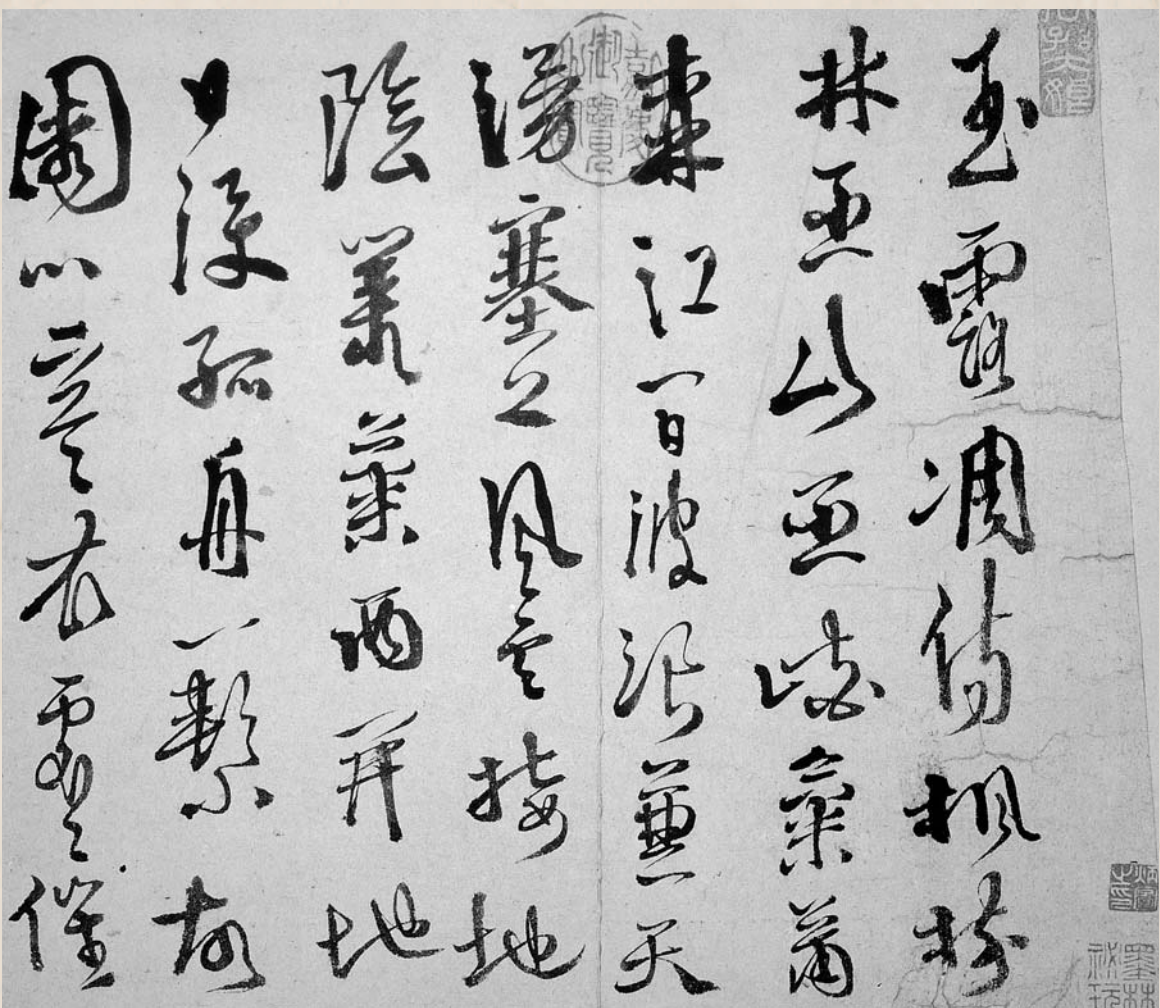 玉露凋傷楓樹
林巫山巫峽氣蕭
森江間波浪兼天
湧塞上風雲接地
陰叢菊兩開地
日淚孤舟一繫故
園心寒衣處〻催
嘉慶御覽之寶